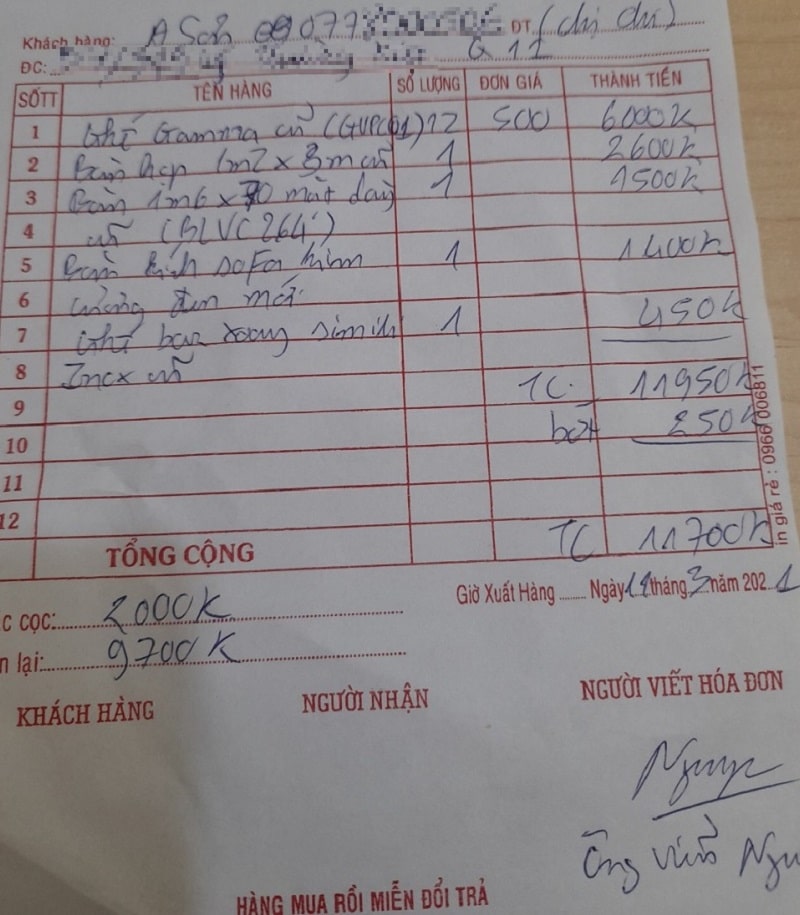 Khách hàng: A Sơn 077 ĐT (chị chi)
ĐC: Q 11
SỐTT TÊN HÀNG SỐ LƯỢNG ĐƠN GIÁ THÀNH TIỀN
1 Ghế Gamma cũ (GVPC01) 12 500 6000K
2 Bàn họp 1m2 x 3m cũ 1 2600K
3 Bàn 1m6 x 70 mặt dày 1 1500K
4 cũ (BLVC264)
5 Bàn kính sofa hình 1 1400K
6 đen mới
7 Ghế bar xoay simili 1 450K
8 Inox cũ
TC. 11950K
9
bớt 250K
10
11
12
TỔNG CỘNG TC 11700K
in giá rẻ : 0966 006811
c cọc: 2000K
Giờ Xuất Hàng Ngày tháng 3 năm 2021
n lại: 9700K
KHÁCH HÀNG NGƯỜI NHẬN NGƯỜI VIẾT HÓA ĐƠN
HÀNG MUA RỒI MIỄN ĐỔI TRẢ